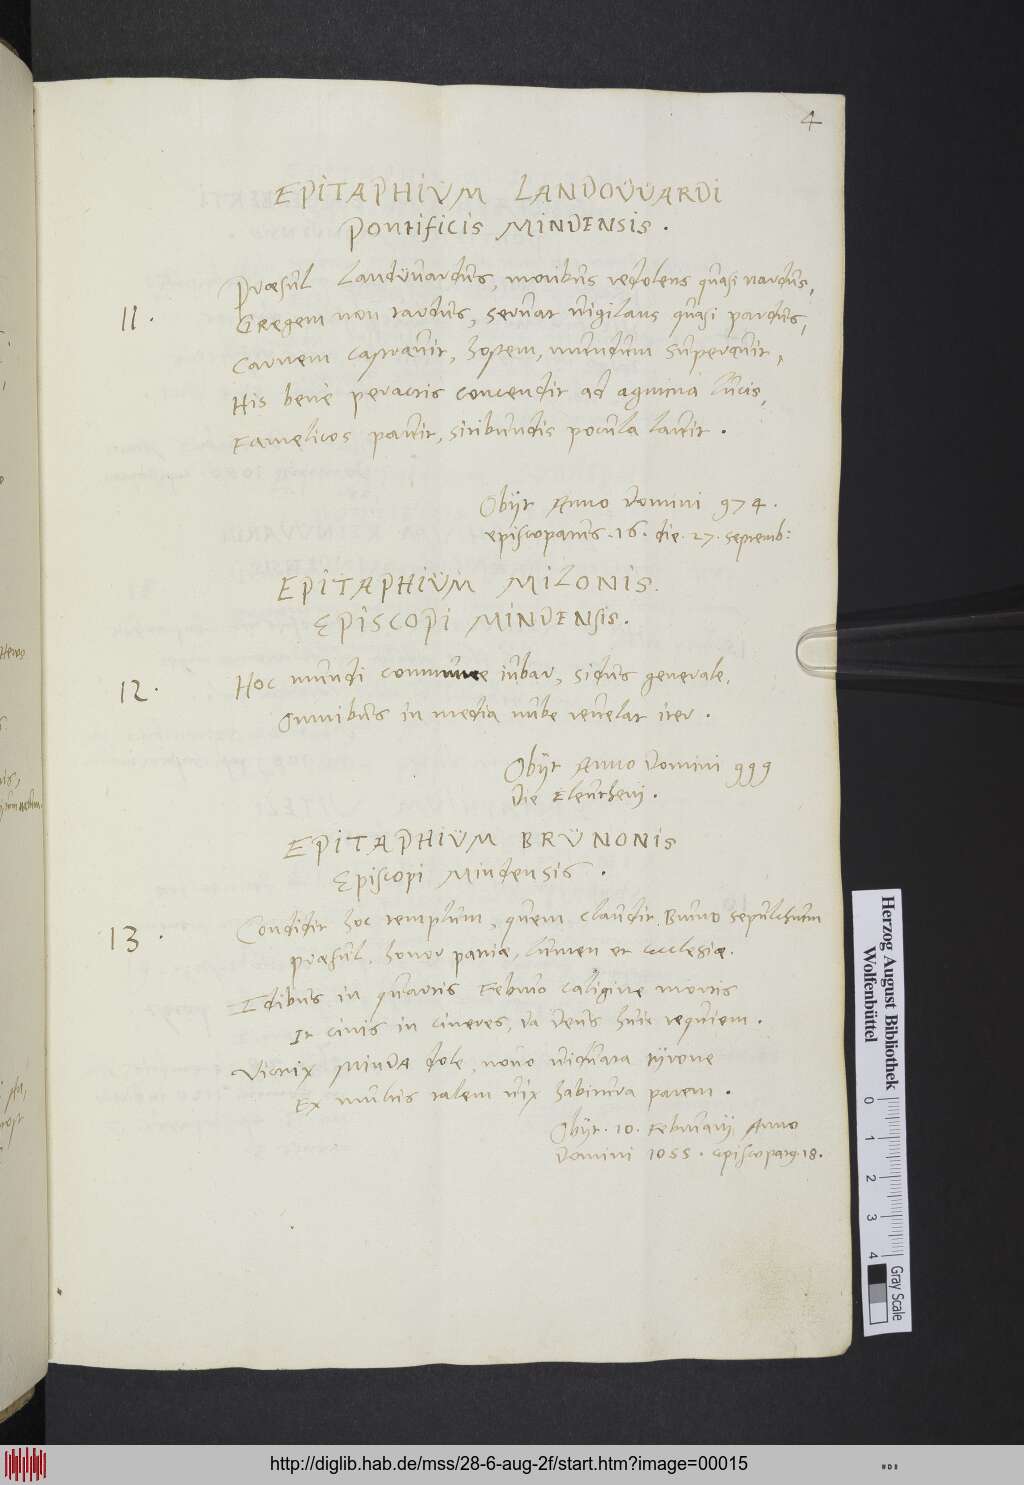 4
EPITAPHIUM LANDOUUARDI
Pontificis MINDENSIS.
11. Præsul Landuuardus, moribus redolens quasi nardus,
Gregem non tardus, seruat uigilans quasi pardus,
Carnem castrauit, hostem, mundum superauit,
His bene peractis concendit ad agmina lucis,
Famelicos pauit, sitibundis pocula lauit.
Obijt Anno Domini 974.
episcopatus. 16. die. 27. septemb:
EPITAPHIUM MILONIS.
EPISCOPI MINDENSIS.
12. Hoc mundi commune iubar, sidus generale,
Omnibus in media nube reuelat iter.
Obijt Anno Domini 999
Die Eleutherij.
EPITAPHIUM BRUNONIS
Episcopi Mindensis.
13. Condidit hoc templum, quem claudit Bruno sepulchrum
præsul, honor patriæ, lumen et ecclesiæ.
Idibus in quartis Februo caligine mortis
It cinis in cineres, da Deus huic requiem.
Victrix MINDA dole, nouo uiduata tyrone
Ex multis talem uix habitura parem.
Obijt. 10. Februarij Anno
Domini 1055. episcopatq. 18.
Herzog August Bibliothek
Wolfenbüttel
0 1 2 3 4
Gray Scale
http://diglib.hab.de/mss/28-6-aug-2f/start.htm?image=00015